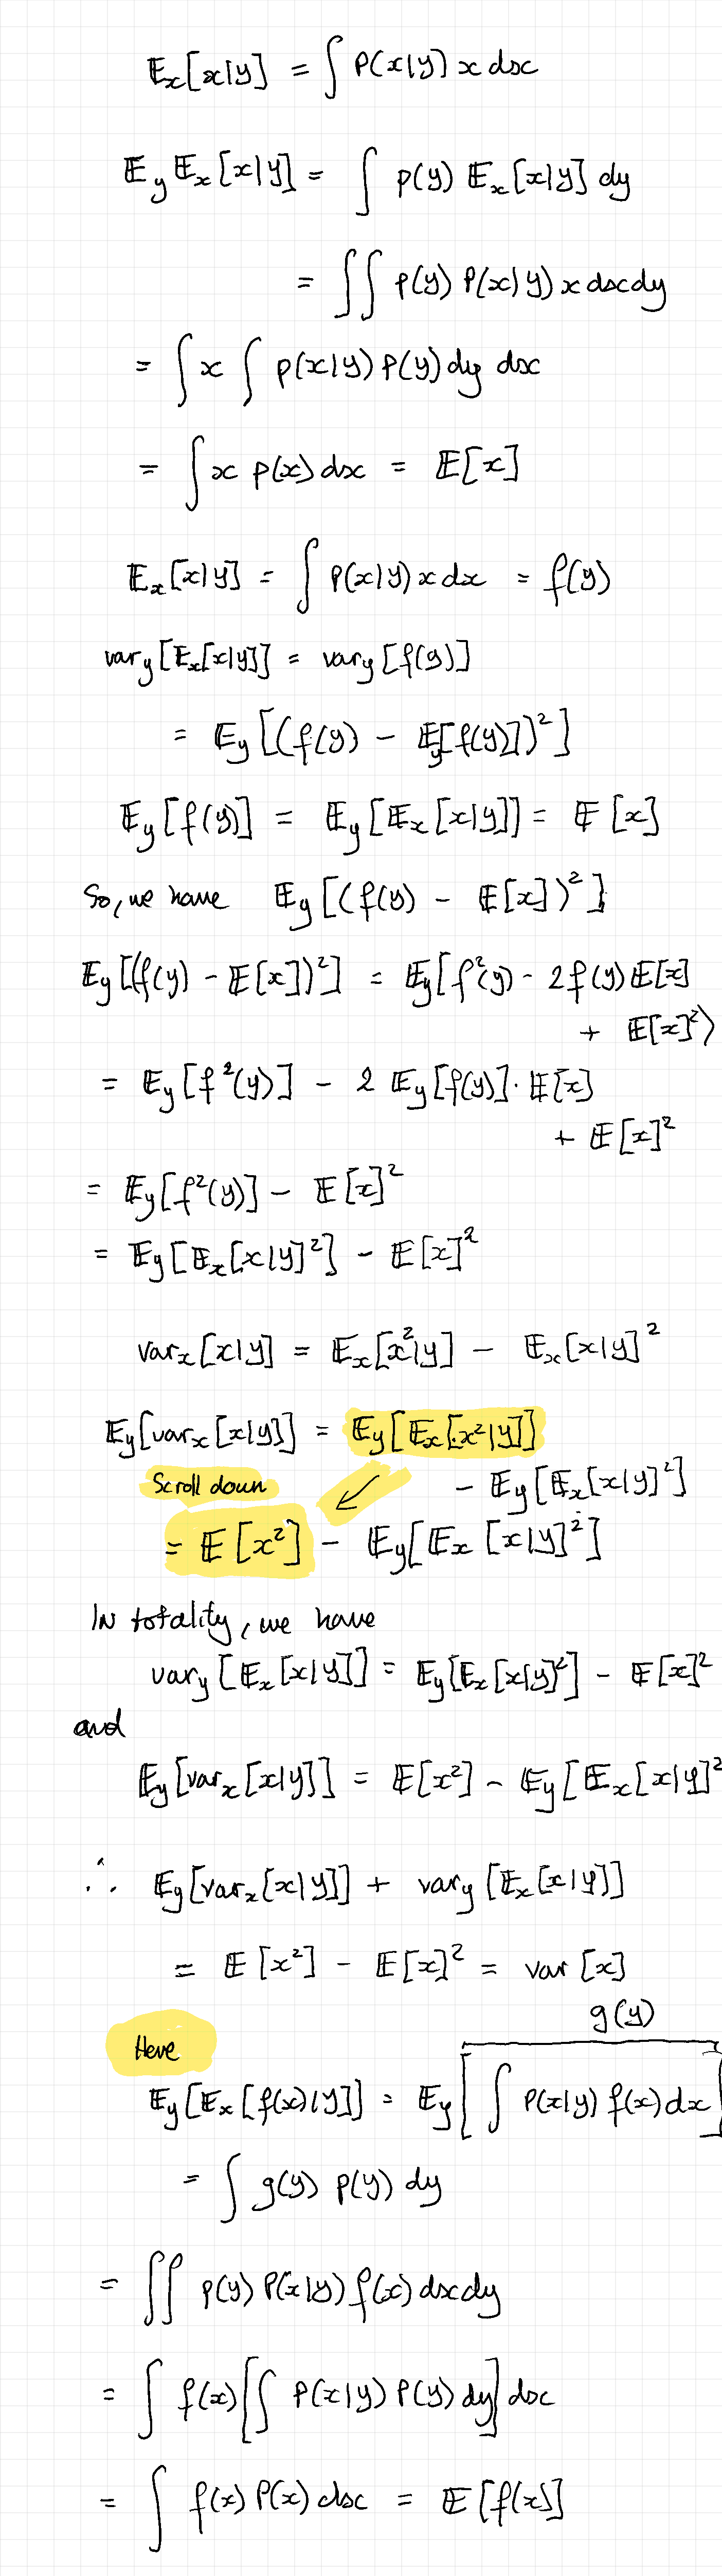 𝔼ₓ[x|y] = ∫ P(x|y) x dx
𝔼_y 𝔼ₓ[x|y] = ∫ p(y) 𝔼ₓ[x|y] dy
= ∫∫ p(y) P(x|y) x dx dy
= ∫ x ∫ p(x|y) P(y) dy dx
= ∫ x p(x) dx = 𝔼[x]
𝔼ₓ[x|y] = ∫ P(x|y) x dx = f(y)
var_y[𝔼ₓ[x|y]] = var_y[f(y)]
= 𝔼_y[(f(y) - 𝔼_y[f(y)])²]
𝔼_y[f(y)] = 𝔼_y[𝔼ₓ[x|y]] = 𝔼[x]
So, we have 𝔼_y[(f(y) - 𝔼[x])²]
𝔼_y[(f(y) - 𝔼[x])²] = 𝔼_y[f²(y) - 2f(y)𝔼[x]
+ 𝔼[x]²]
= 𝔼_y[f²(y)] - 2 𝔼_y[f(y)]·𝔼[x]
+ 𝔼[x]²
= 𝔼_y[f²(y)] - 𝔼[x]²
= 𝔼_y[𝔼ₓ[x|y]²] - 𝔼[x]²
varₓ[x|y] = 𝔼ₓ[x²|y] - 𝔼ₓ[x|y]²
𝔼_y[varₓ[x|y]] = 𝔼_y[𝔼ₓ[x²|y]]
Scroll down ↙ - 𝔼_y[𝔼ₓ[x|y]²]
= 𝔼[x²] - 𝔼_y[𝔼ₓ[x|y]²]
In totality, we have
var_y[𝔼ₓ[x|y]] = 𝔼_y[𝔼ₓ[x|y]²] - 𝔼[x]²
and
𝔼_y[varₓ[x|y]] = 𝔼[x²] - 𝔼_y[𝔼ₓ[x|y]²
∴ 𝔼_y[varₓ[x|y]] + var_y[𝔼ₓ[x|y]]
= 𝔼[x²] - 𝔼[x]² = var[x]
g(y)
Here
𝔼_y[𝔼ₓ[f(x)|y]] = 𝔼_y[∫ P(x|y) f(x) dx]
= ∫ g(y) p(y) dy
= ∫∫ p(y) P(x|y) f(x) dx dy
= ∫ f(x) [∫ P(x|y) P(y) dy] dx
= ∫ f(x) P(x) dx = 𝔼[f(x)]